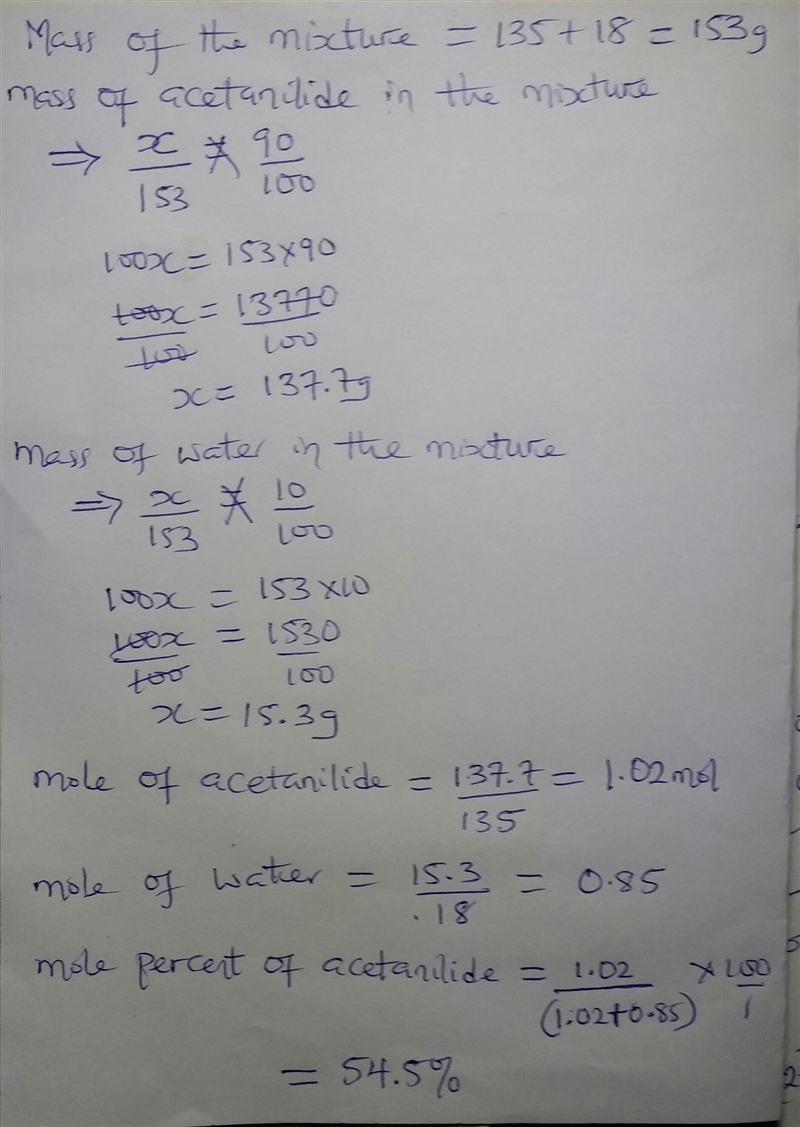 Mass of the mixture = 135 + 18 = 153g
mass of acetanilide in the mixture
⇒ x/153 ⚹ 90/100
100x = 153 × 90
100x/100 = 13770/100
x = 137.7g
mass of water in the mixture
⇒ x/153 ⚹ 10/100
100x = 153 × 10
100x/100 = 1530/100
x = 15.3g
mole of acetanilide = 137.7/135 = 1.02 mol
mole of water = 15.3/18 = 0.85
mole percent of acetanilide = 1.02/(1.02+0.85) × 100/1
= 54.5%